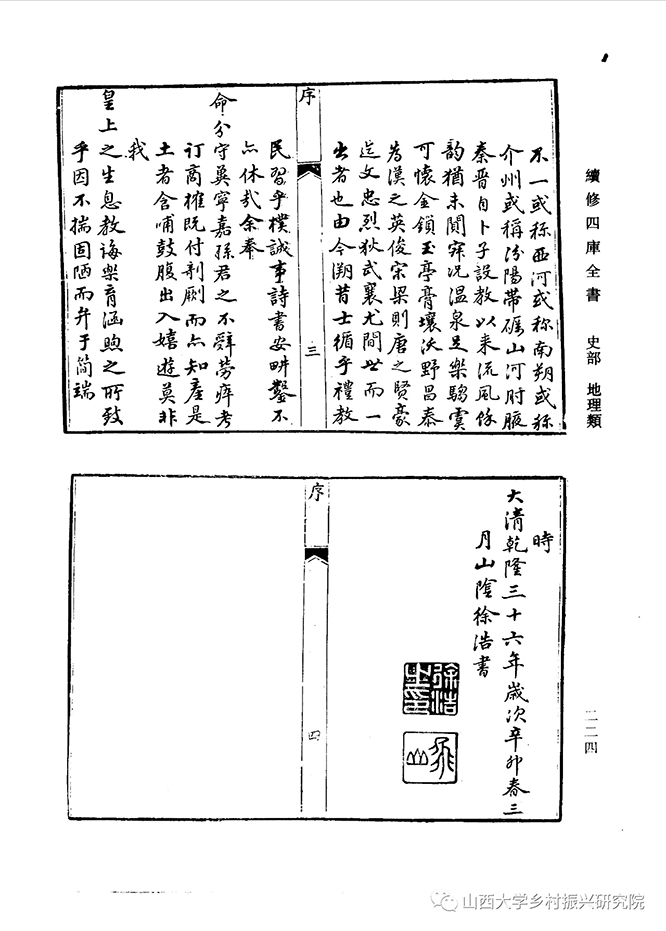 續修四庫全書 史部 地理類
二二四
不一或称西河或称南朔或称
介州或称汾陽帯砺山河肘腋
秦晋自卜子設教以来流風馀
韵猶未闃寂况温泉足樂騶虞
可懷金鎖玉亭膏壤沃野昌泰
為漢之英俊宋梁則唐之賢豪
迨文忠烈狄武襄尤間世而一
出者也由今溯昔士循乎禮教
序
三
民習乎樸誠事詩書安畊鑿不
亦休哉余奉
命分守冀寧嘉孫君之不辭劳瘁考
订商榷既付剞劂而亦知産是
土者含哺鼓腹出入嬉遊莫非
我
皇上之生息教誨樂育涵煦之所致
乎因不揣固陋而弁于简端
時
大清乾隆三十六年歲次辛卯春三
月山陰徐浩書
徐浩
序
四
山西大学乡村振兴研究院